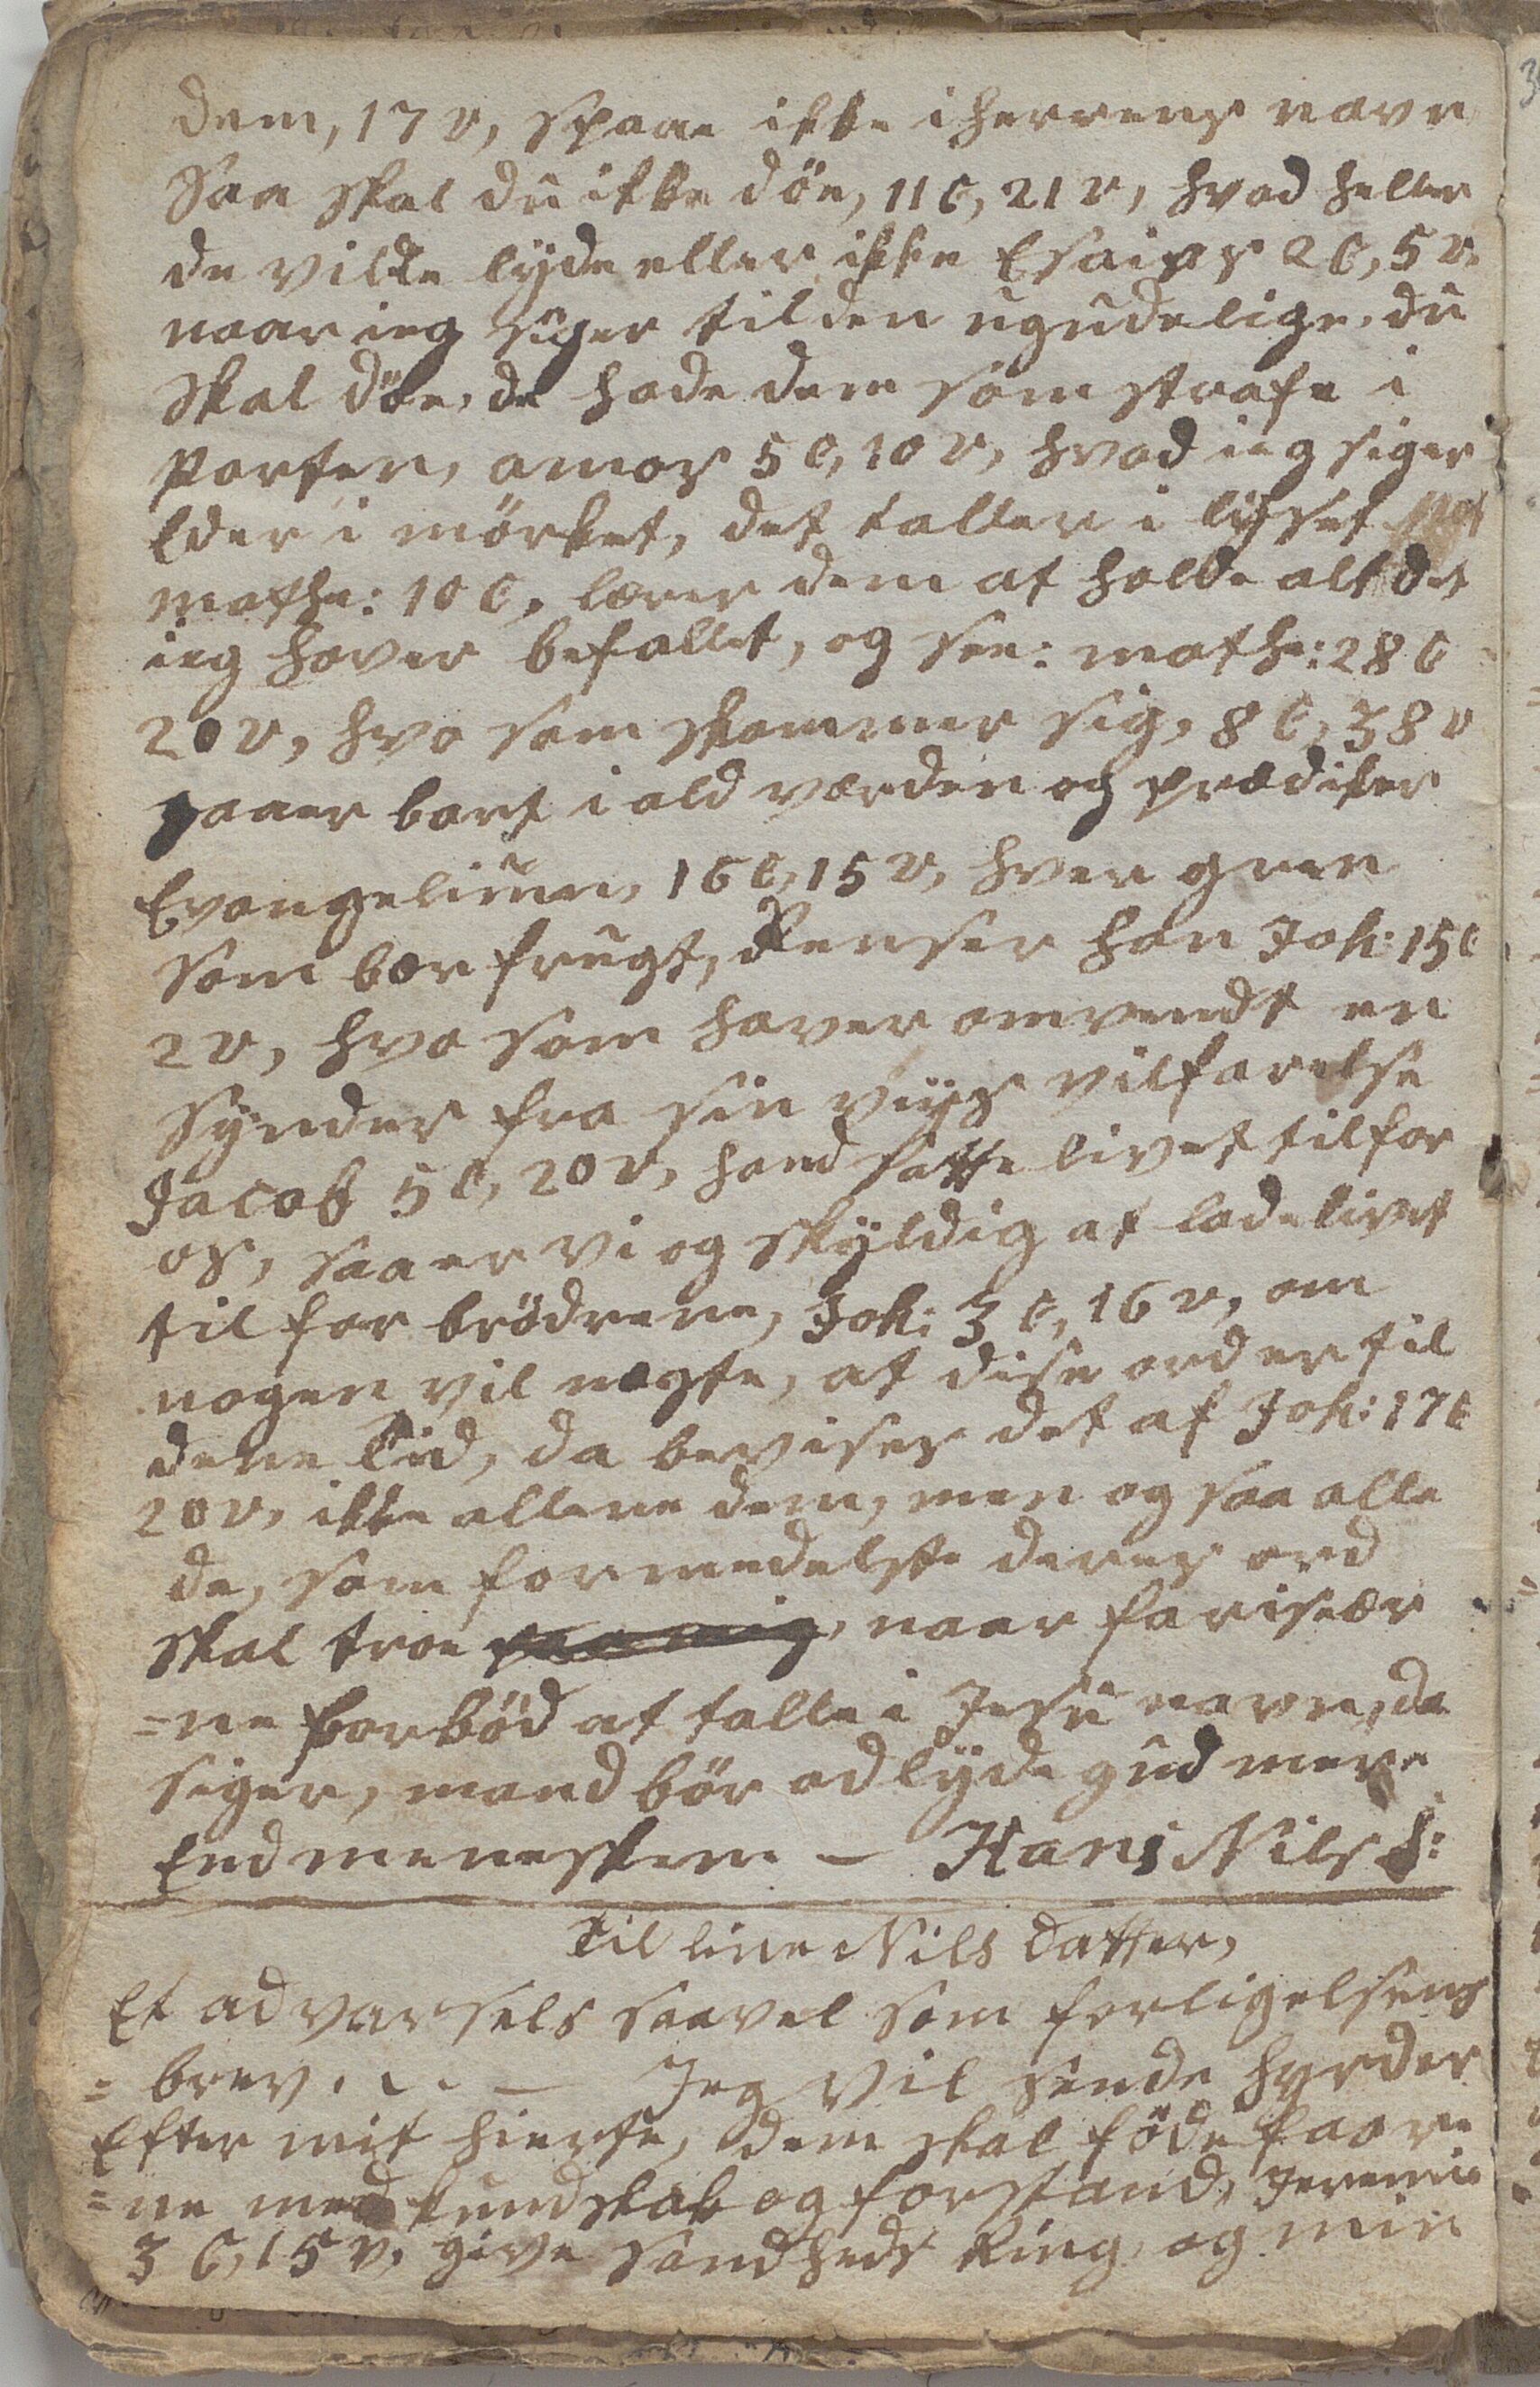 dem, 17 v, spaae ikke i herrens navn
Saa skal du ikke döe, 11 C, 21 v, hvad heller
de vilde lyde eller ikke Esaias 2 C, 5 v.
naar ieg siger til den ugudelige, du
skal döe, de hade dem som strafe i
Porten, amos 5 C, 10 v, hvad ieg siger
Eder i mörket, det taller i lysset
mathe: 10 C, lærer dem at holde alt det
ieg haver befallet, og see: mathe: 28 C
20 v, hvo som skammer sig, 8 C, 38 v
gaaer bort i ald værden og prædiker
Evangelium, 16 C, 15 v, hver green
som bær frugt, Renser han Joh: 15 C
2 v, hvo som haver omvendt en
Synder fra sin viiys vilfarelse
Jacob 5 C, 20 v, hand satte livet til for
os, saa er vi og skyldig at lade livet
til for brödrene, Joh: 3 C, 16 v, om
nogen vil nægte, at dise ord er til
dene tid, da bevises det af Joh: 17 C
20 v, ikke allene dem, men og saa alle
de, som formedelst deres ord
skal troe paa mig, naar farisær
=ne forböd at talle i Jesu navn, da
siger, mand bör adlyde gud mere
End meneskene – Hans Nils S:
Til line Nils datter,
Et advarsels saavel som forligelsens
= brev. . . – Jeg vil sende hyrder
Efter mit hierte, dem skal föde faare
=ne med kundskab og forstand, Jeremie
3 C, 15 v, give sandheds Ring, og min